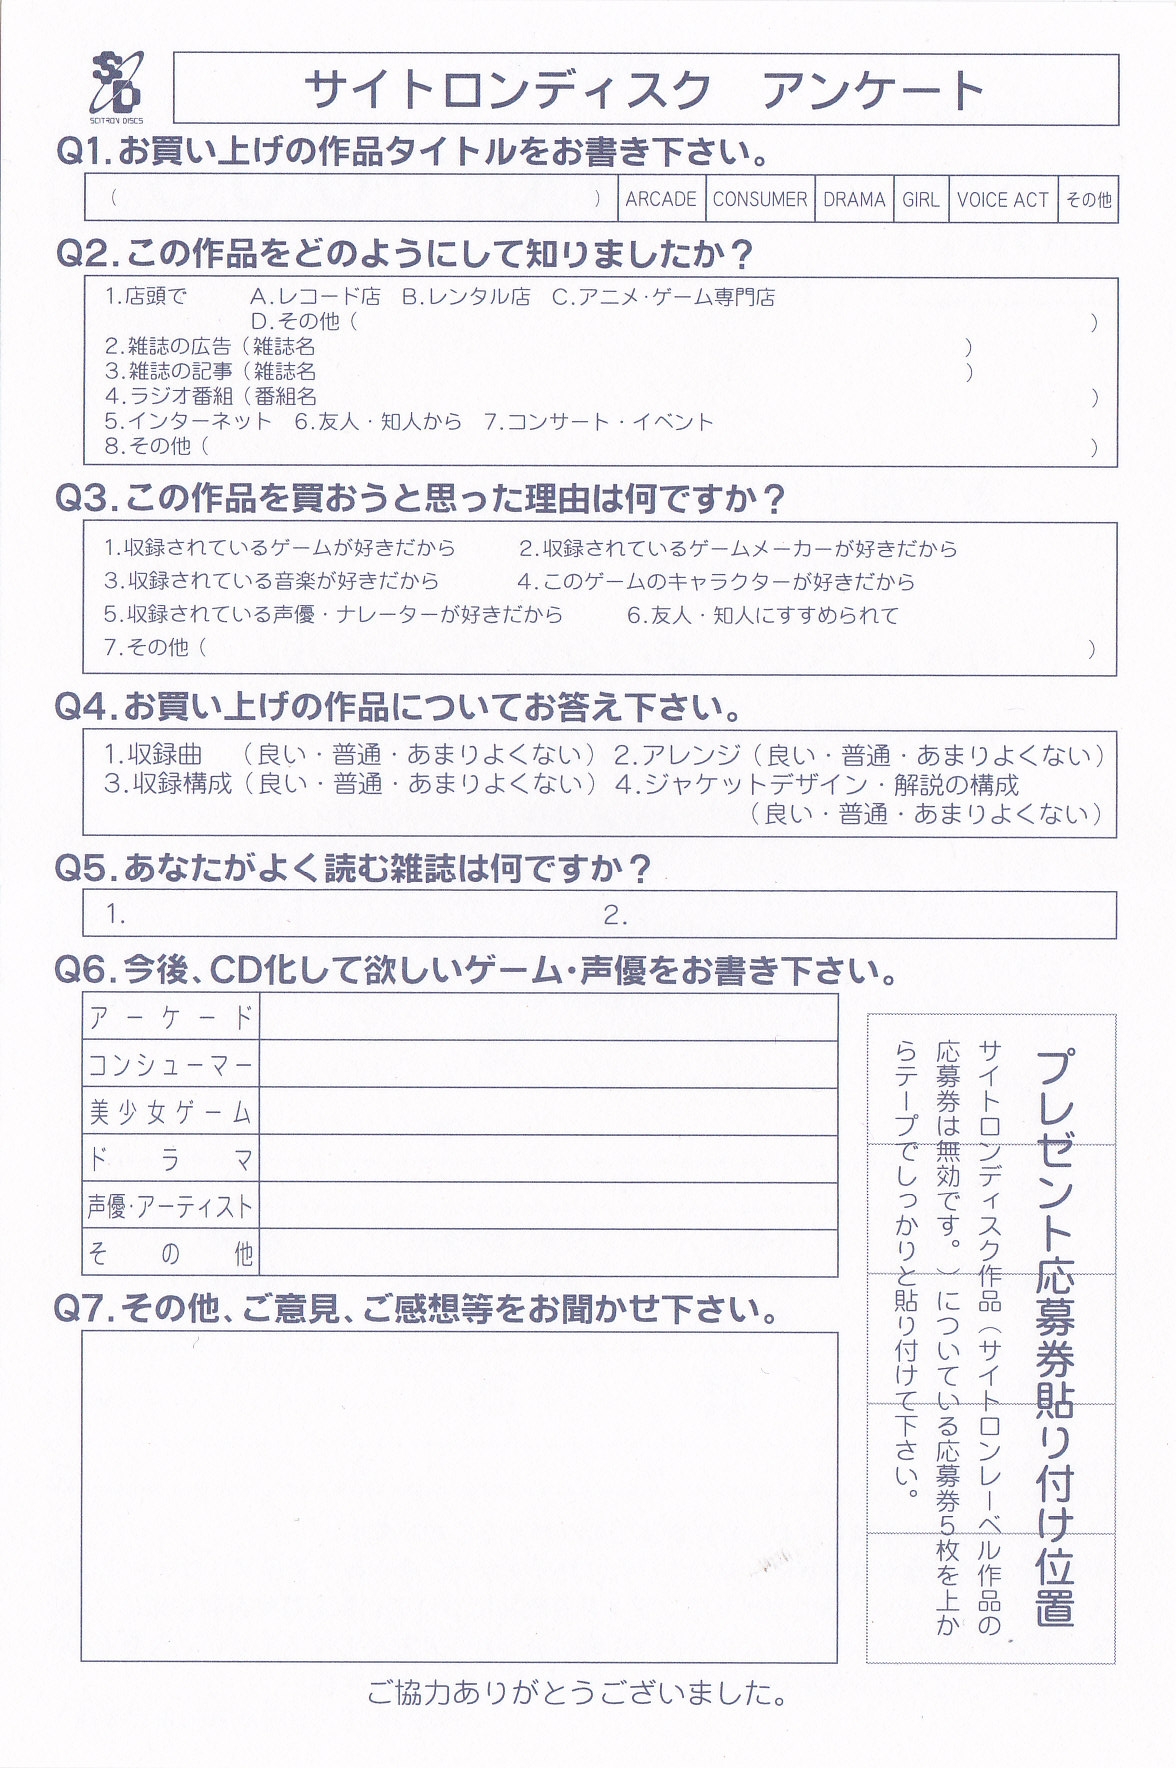 SD
SCITRON DISCS
サイトロンディスク　アンケート
Q1.お買い上げの作品タイトルをお書き下さい。
（　　　　　） ARCADE CONSUMER DRAMA GIRL VOICE ACT その他
Q2.この作品をどのようにして知りましたか？
1.店頭で　A.レコード店　B.レンタル店　C.アニメ・ゲーム専門店
D.その他（　　　　　）
2.雑誌の広告（雑誌名　　　　　）
3.雑誌の記事（雑誌名　　　　　）
4.ラジオ番組（番組名　　　　　）
5.インターネット　6.友人・知人から　7.コンサート・イベント
8.その他（　　　　　）
Q3.この作品を買おうと思った理由は何ですか？
1.収録されているゲームが好きだから　2.収録されているゲームメーカーが好きだから
3.収録されている音楽が好きだから　4.このゲームのキャラクターが好きだから
5.収録されている声優・ナレーターが好きだから　6.友人・知人にすすめられて
7.その他（　　　　　）
Q4.お買い上げの作品についてお答え下さい。
1.収録曲　（良い・普通・あまりよくない）2.アレンジ（良い・普通・あまりよくない）
3.収録構成（良い・普通・あまりよくない）4.ジャケットデザイン・解説の構成
（良い・普通・あまりよくない）
Q5.あなたがよく読む雑誌は何ですか？
1.　　　　　2.
Q6.今後、CD化して欲しいゲーム・声優をお書き下さい。
アーケード
コンシューマー
美少女ゲーム
ドラマ
声優・アーティスト
その他
プレゼント応募券貼り付け位置
サイトロンディスク作品（サイトロンレーベル作品の
応募券は無効です。）についている応募券5枚を上か
らテープでしっかりと貼り付けて下さい。
Q7.その他、ご意見、ご感想等をお聞かせ下さい。
ご協力ありがとうございました。